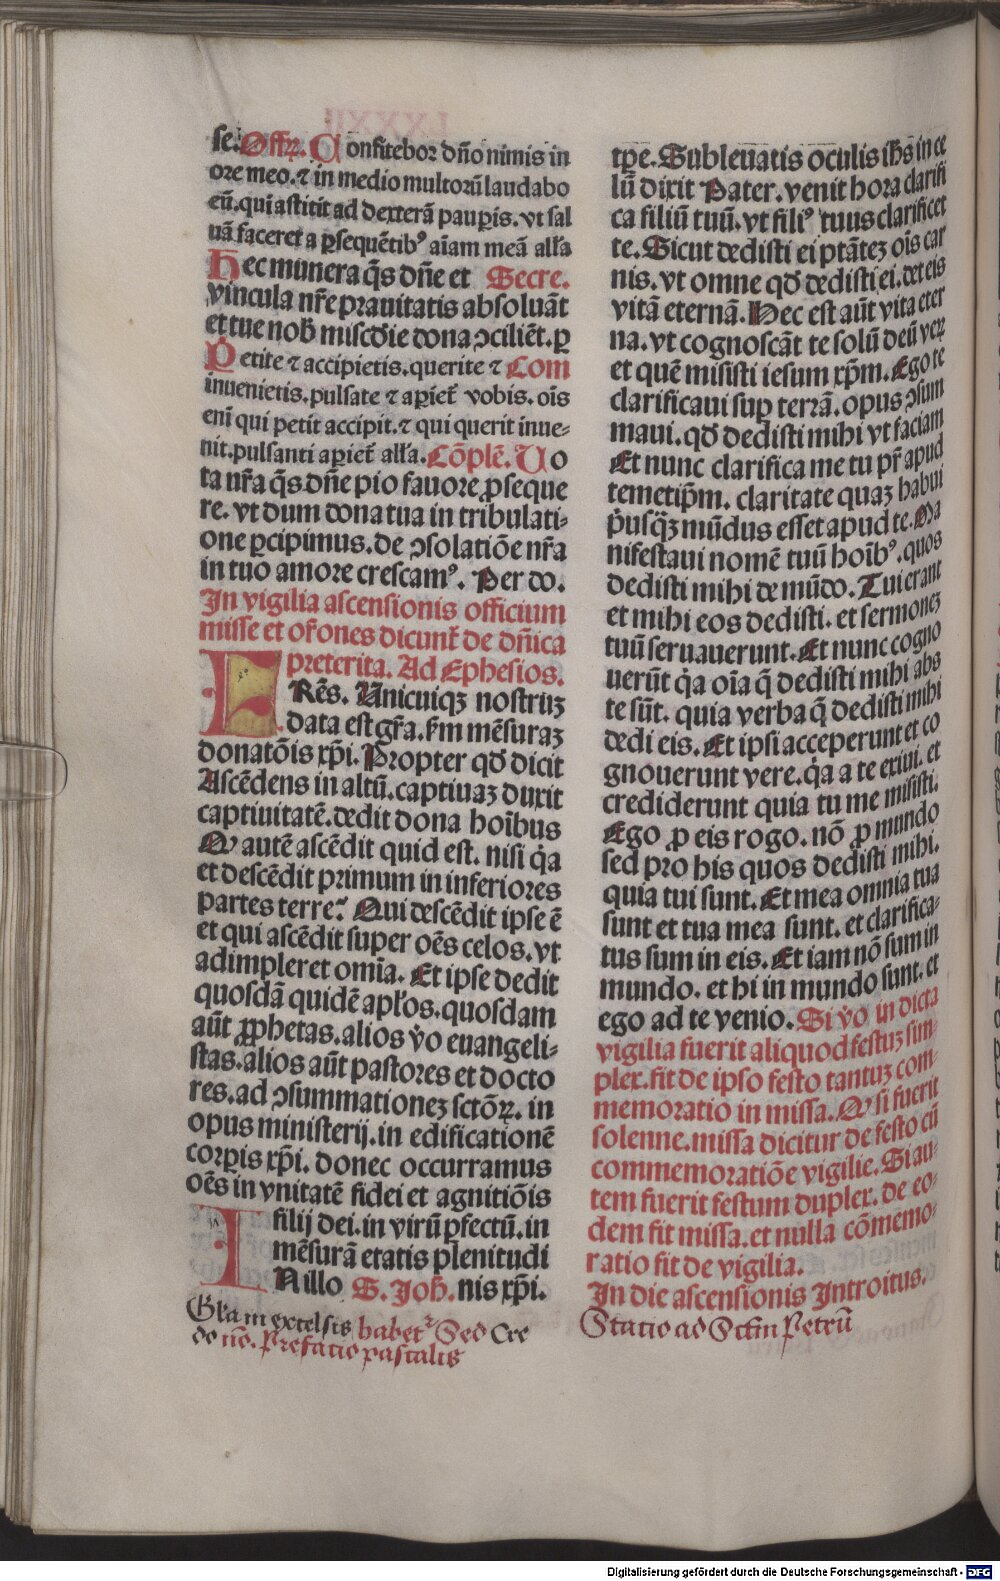 se. Offꝝ. Confitebor dño nimis in
ore meo. ⁊ in medio multorũ laudabo
eũ. qui astitit ad dexterã pauꝑis. vt sal
uã faceret a ꝑsequẽtibꝰ aĩam meã alła
Hec munera q̃s dñe et Secre.
vincula nr̃e prauitatis absoluãt
et tue nob̃ misc̃die dona ↄciliẽt. ꝑ
Petite ⁊ accipietis. querite ⁊ Com
inuenietis. pulsate ⁊ aꝑiet̃ vobis. oĩs
enĩ qui petit accipit. ⁊ qui querit inue-
nit. pulsanti aꝑiet̃ alła. Cõplẽ. Uo
ta nr̃a q̃s dñe pio fauore ꝓseque
re. vt dum dona tua in tribulati-
one ꝑcipimus. de ↄsolatiõe nr̃a
in tuo amore crescamꝰ. Per do.
In vigilia ascensionis officium
misse et or̃ones dicunt̃ de dñica
preterita. Ad Ephesios.
FRẽs. Unicuiqꝫ nostruꝫ
data est gr̃a. ẜm mẽsuraꝫ
donatõis xp̃i. Propter qđ dicit
Ascẽdens in altũ. captiuaꝫ duxit
captiuitatẽ. dedit dona hoĩbus
Ꝙ autẽ ascẽdit quid est. nisi q̃a
et descẽdit primum in inferiores
partes terre. Qui descẽdit ipse ẽ
et qui ascẽdit super oẽs celos. vt
adimpleret omĩa. Et ipse dedit
quosdã quidẽ apłos. quosdam
aũt ꝓphetas. alios v̊o euangeli-
stas. alios aũt pastores et docto
res. ad ↄsummationeꝫ sctõꝝ. in
opus ministerij. in edificationẽ
corꝑis xp̃i. donec occurramus
oẽs in vnitatẽ fidei et agnitiõis
filij dei. in virũ ꝑfectũ. in
mẽsurã etatis plenitudi
INillo S. Joh̃. nis xp̃i.
Gl̃a in excelsis habet᷑ Sed Cre
do nõ. Prefatio pascalis
tꝑe. Subleuatis oculis ih̃s in ce
lũ dixit Pater. venit hora clarifi
ca filiũ tuũ. vt filiꝰ tuus clarificet
te. Sicut dedisti ei ptãteꝫ oĩs car
nis. vt omne qđ dedisti ei. det eis
vitã eternã. Hec est aũt vita eter
na. vt cognoscãt te solũ deũ veꝝ
et quẽ misisti iesum xp̃m. Ego te
clarificaui suꝑ terrã. opus ↄsum
maui. qđ dedisti mihi vt faciam
Et nunc clarifica me tu pr̃ apud
temetip̃m. claritate quaꝫ habui
p̃usq̃ꝫ mũdus esset apud te. Ma
nifestaui nomẽ tuũ hoĩbꝰ. quos
dedisti mihi de mũdo. Tui erant
et mihi eos dedisti. et sermoneꝫ
tuũ seruauerunt. Et nunc cogno
uerũt q̃a oĩa q̃ dedisti mihi abs
te sũt. quia verba q̃ dedisti mihi
dedi eis. Et ipsi acceperunt et co
gnouerunt vere. q̃a a te exiui. et
crediderunt quia tu me misisti.
Ego ꝓ eis rogo. nõ ꝓ mundo
sed pro his quos dedisti mihi.
quia tui sunt. Et mea omnia tua
sunt et tua mea sunt. et clarifica-
tus sum in eis. Et iam nõ sum in
mundo. et hi in mundo sunt. et
ego ad te venio. Si v̊o in dicta
vigilia fuerit aliquod festuꝫ sim-
plex. fit de ipso festo tantuꝫ com-
memoratio in missa. Ꝙ si fuerit
solenne. missa dicitur de festo cũ
commemoratiõe vigilie. Si au-
tem fuerit festum duplex. de eo-
dem fit missa. et nulla cõmemo-
ratio fit de vigilia.
In die ascensionis Introitus.
Statio ad Sctm̃ Petrũ
Digitalisierung gefördert durch die Deutsche Forschungsgemeinschaft - DFG